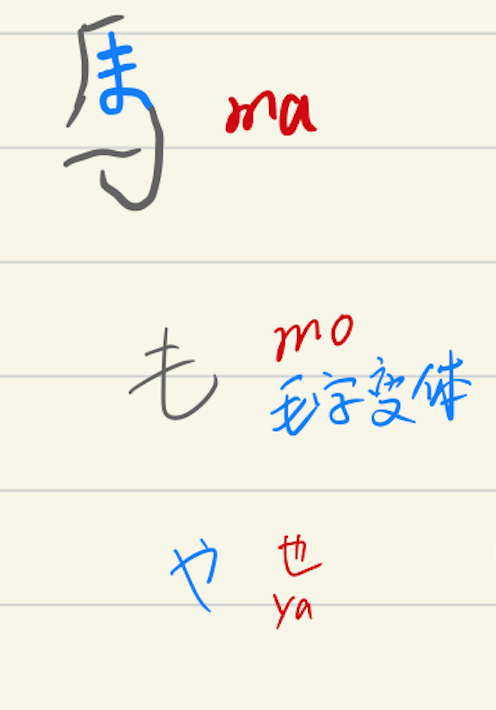 馬 ma
も mo
毛字变体
や 也
ya